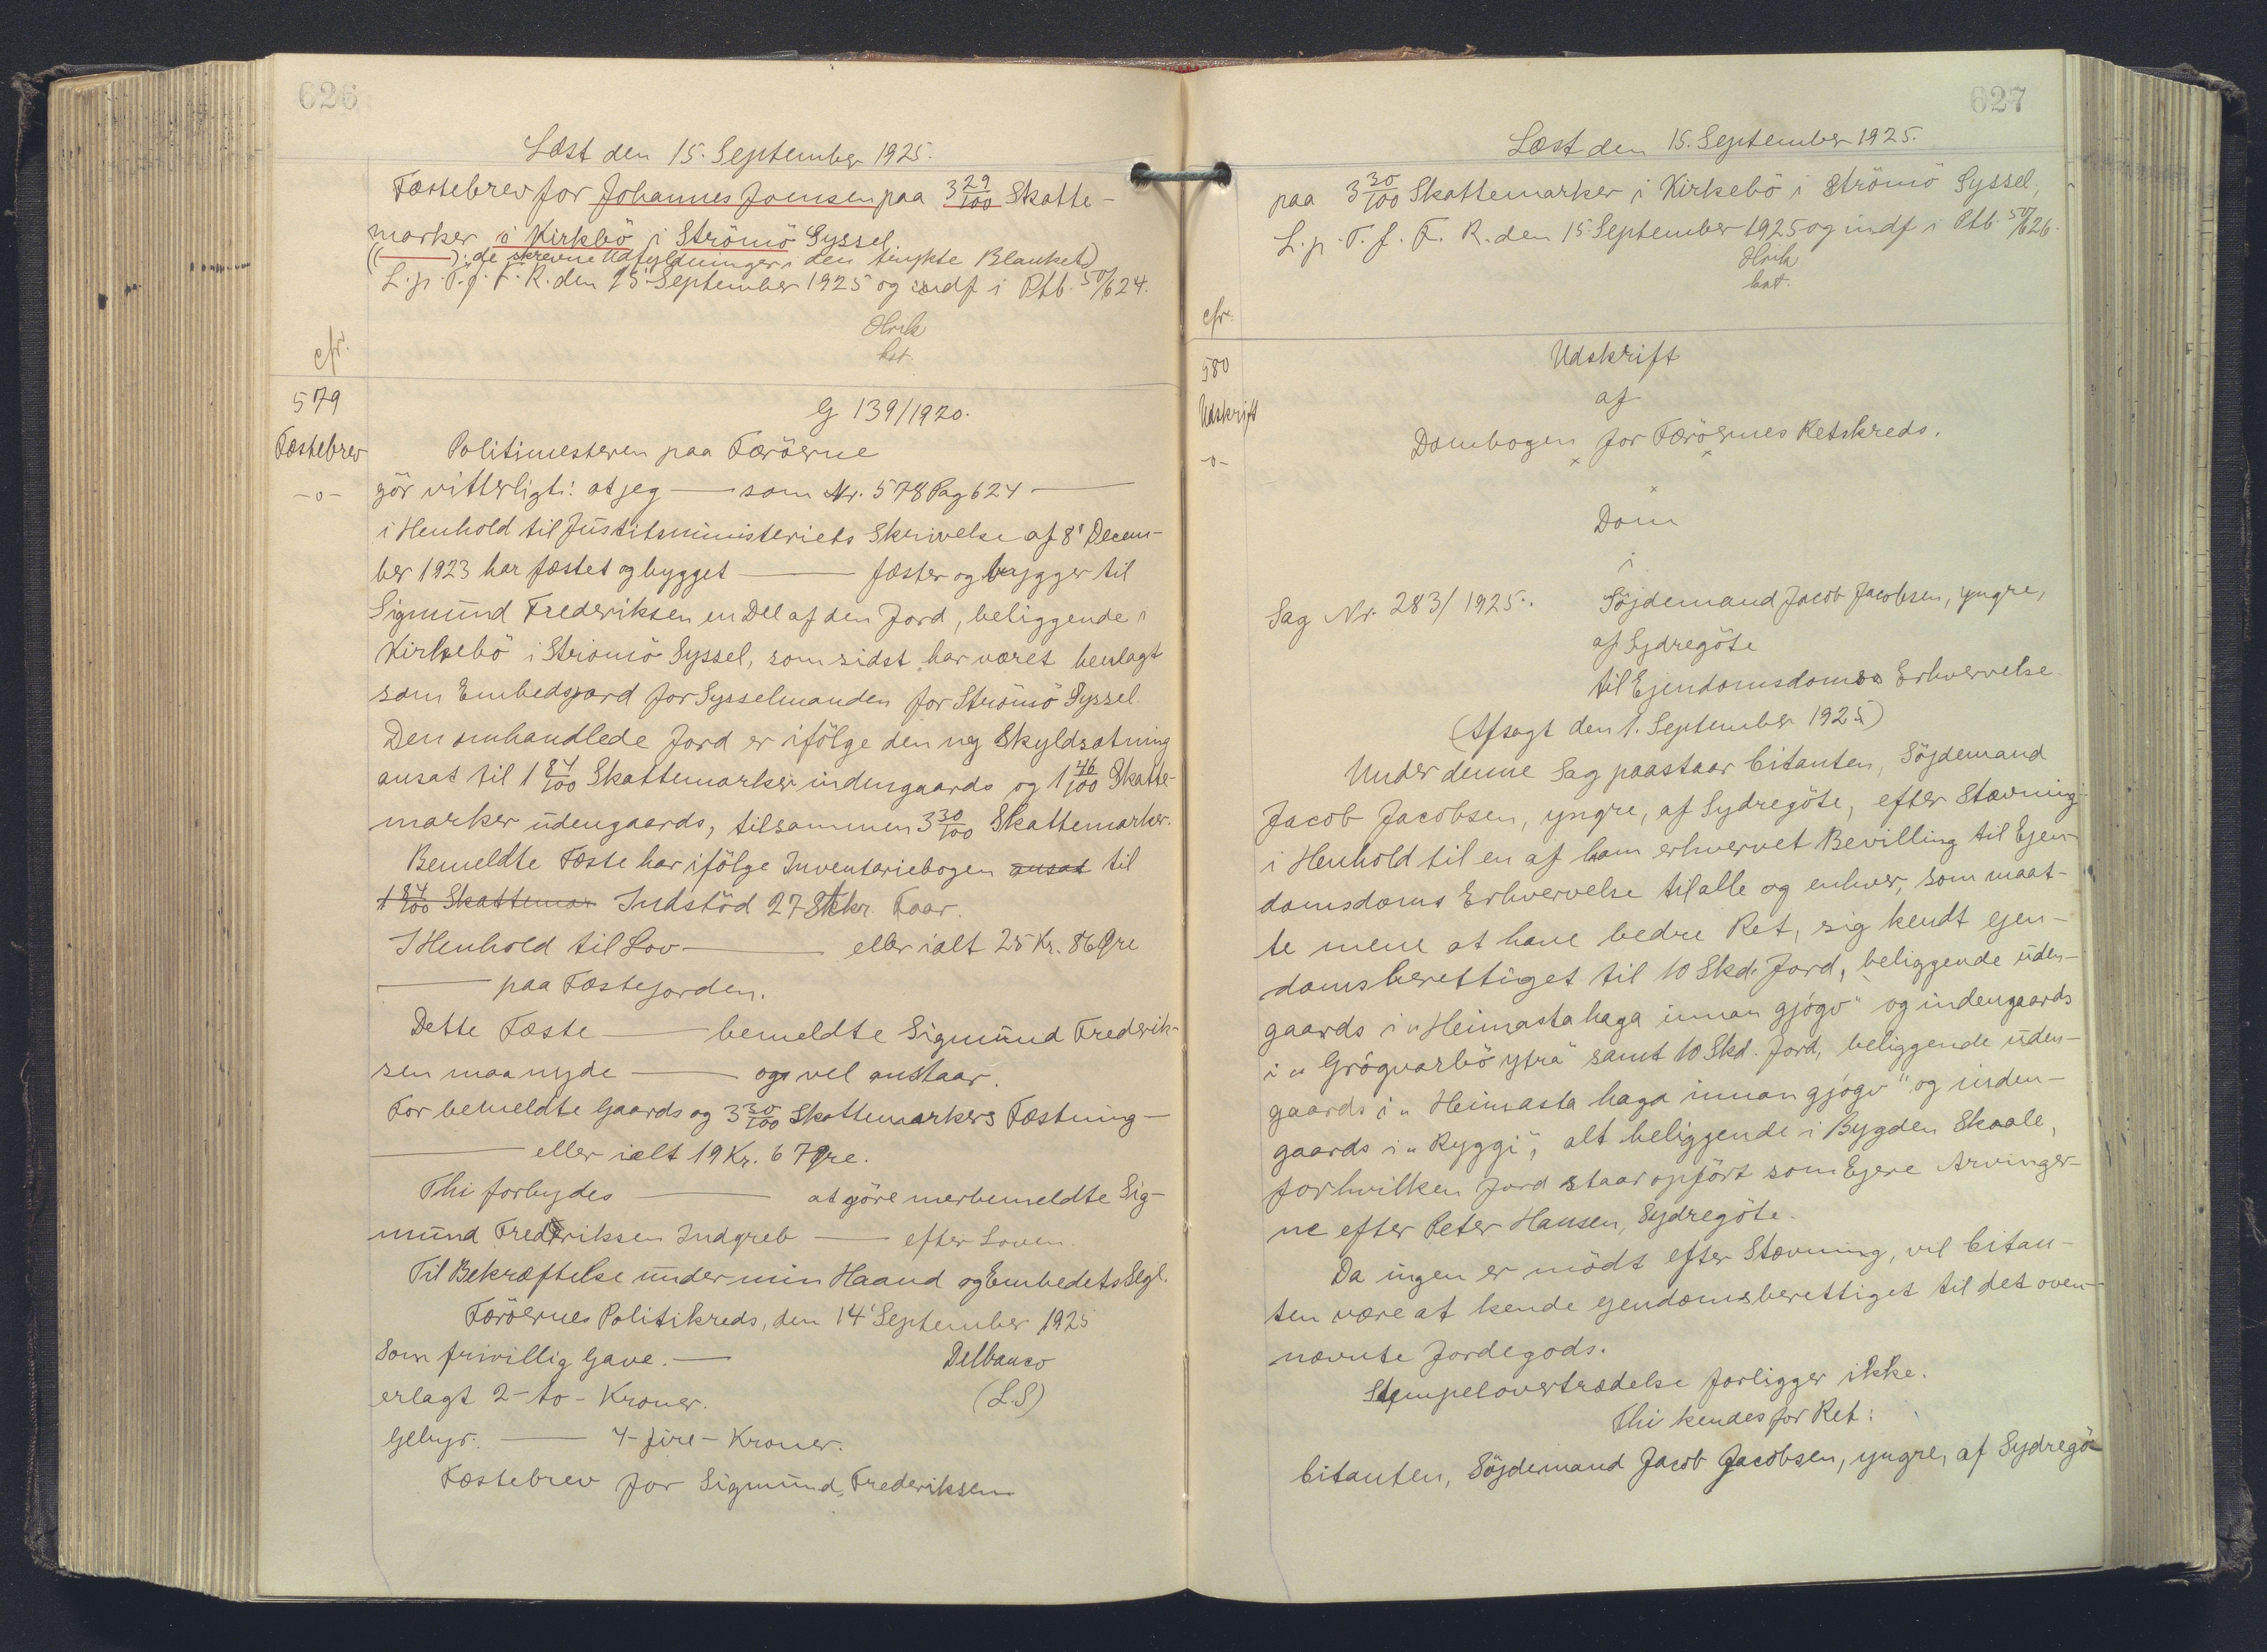 626
Læst den 15. September 1925.
Fæstebrev for Johannes Joensen paa 3 29/100 Skatte-
marker i Kirkebö i Strömö Syssel
((———): de skrevne Udfyldninger i den trykte Blanket)
L. p. T. f. F. R. den 15' September 1925 og indf i Ptb. 50/624.
Olrik
kst.
cfr.
579
Fæstebrev
-o-
G 139/1920.
Politimesteren paa Færöerne
gör vitterligt: at jeg ——— som Nr. 578 Pag 624 ———
i Henhold til Justitsministeriets Skrivelse af 8' Decem-
ber 1923 har fæstet og bygget ——— fæster og bygger til
Sigmund Frederiksen en Del af den Jord, beliggende i
Kirkebö i Strömö Syssel, som sidst har været henlagt
som Embedsjord for Sysselmanden for Strömö Syssel.
Den omhandlede Jord er ifölge den ny Skyldsætning
ansat til 1 84/100 Skattemarker indengaards og 1 46/100 Skatte-
marker udengaards, tilsammen 3 30/100 Skattemarker.
Bemeldte Fæste har ifölge Inventariebogen ansat til
1 84/100 Skattemar Indstöd 27 Stkr. Faar.
I Henhold til Lov ——— eller ialt 25 Kr. 86 Øre
——— paa Fæstejorden.
Dette Fæste ——— bemeldte Sigmund Frederik-
sen maa nyde ——— og vel anstaar.
For bemeldte Gaards og 3 30/100 Skattemarkers Fæstning —
——— eller ialt 19 Kr. 67 Øre.
Thi forbydes ——— at göre merbemeldte Sig-
mund Frederiksen Indgreb ——— efter Loven.
Til Bekræftelse under min Haand og Embedets Segl.
Færöernes Politikreds, den 14' September 1925
Som frivillig Gave. — Delbanco
erlagt 2 - to - Kroner. (L.S)
Gebyr. ——— 4 - fire - Kroner.
Fæstebrev for Sigmund Frederiksen
627
Læst den 15. September 1925.
paa 3 30/100 Skattemarker i Kirkebö i Strömö Syssel,
L. p. T. f. F. R. den 15' September 1925 og indf i Ptb 50/626.
Olrik
kst.
cfr.
580
Udskrift
-o-
Udskrift
af
Dombogen for Færöernes Retskreds.
x x
x
Dom
i
Sag Nr. 283/1925. Söjdemand Jacob Jacobsen, yngre,
af Sydregöte
til Ejendomsdoms Erhvervelse.
(Afsagt den 1. September 1925)
Under denne Sag paastaar Citanten, Söjdemand
Jacob Jacobsen, yngre, af Sydregöte, efter Stævning
i Henhold til en af ham erhvervet Bevilling til Ejen-
domsdoms Erhvervelse til alle og enhver, som maat-
te mene at have bedre Ret, sig kendt ejen-
domsberettiget til 10 Skd. Jord, beliggende uden-
gaards i "Heimasta haga innan gjógv" og indengaards
i "Grógvarbö ytra" samt 10 Skd. Jord, beliggende uden-
gaards i "Heimasta haga innan gjógv" og inden-
gaards i "Ryggi", alt beliggende i Bygden Skaale,
for hvilken Jord staar opfört som Ejere Arvinger-
ne efter Peter Hansen, Sydregöte.
Da ingen er mödt efter Stævning, vil Citan-
ten være at kende ejendomsberettiget til det oven-
nævnte Jordegods.
Stempelovertrædelse forligger ikke.
Thi kendes for Ret:
Citanten, Söjdemand Jacob Jacobsen, yngre, af Sydregö-